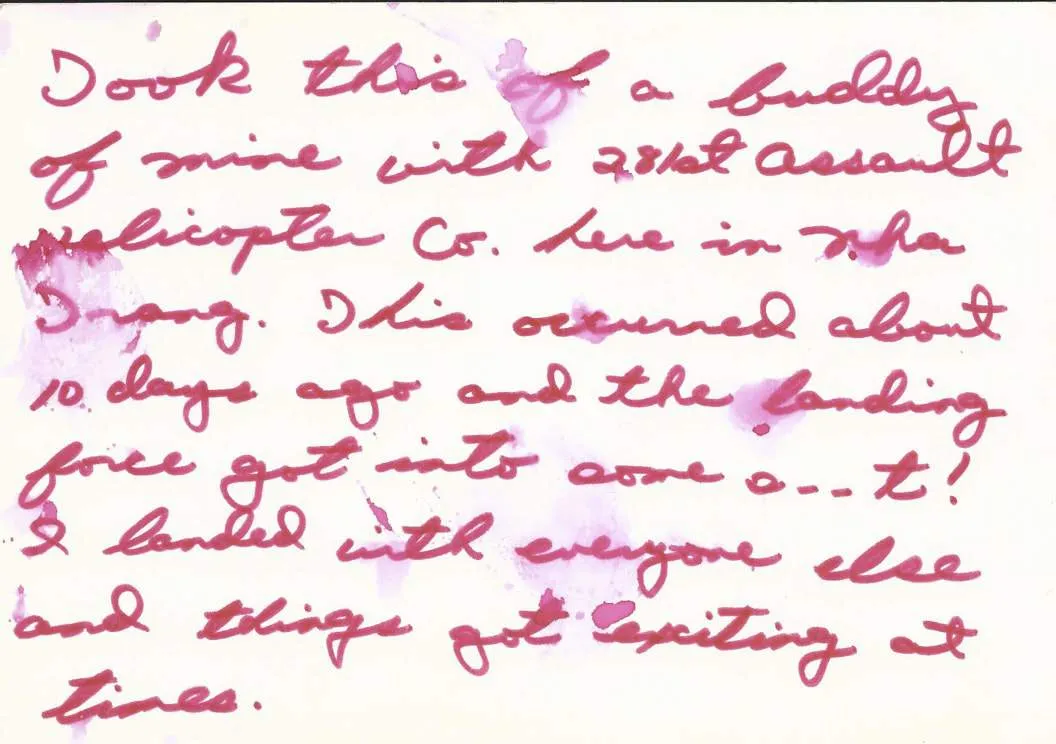 Took this of a buddy
of mine with 281st Assault
Helicopter Co. here in Nha
Trang. This occurred about
10 days ago and the landing
force got into some s--t!
I landed with everyone else
and things got exiting at
times.